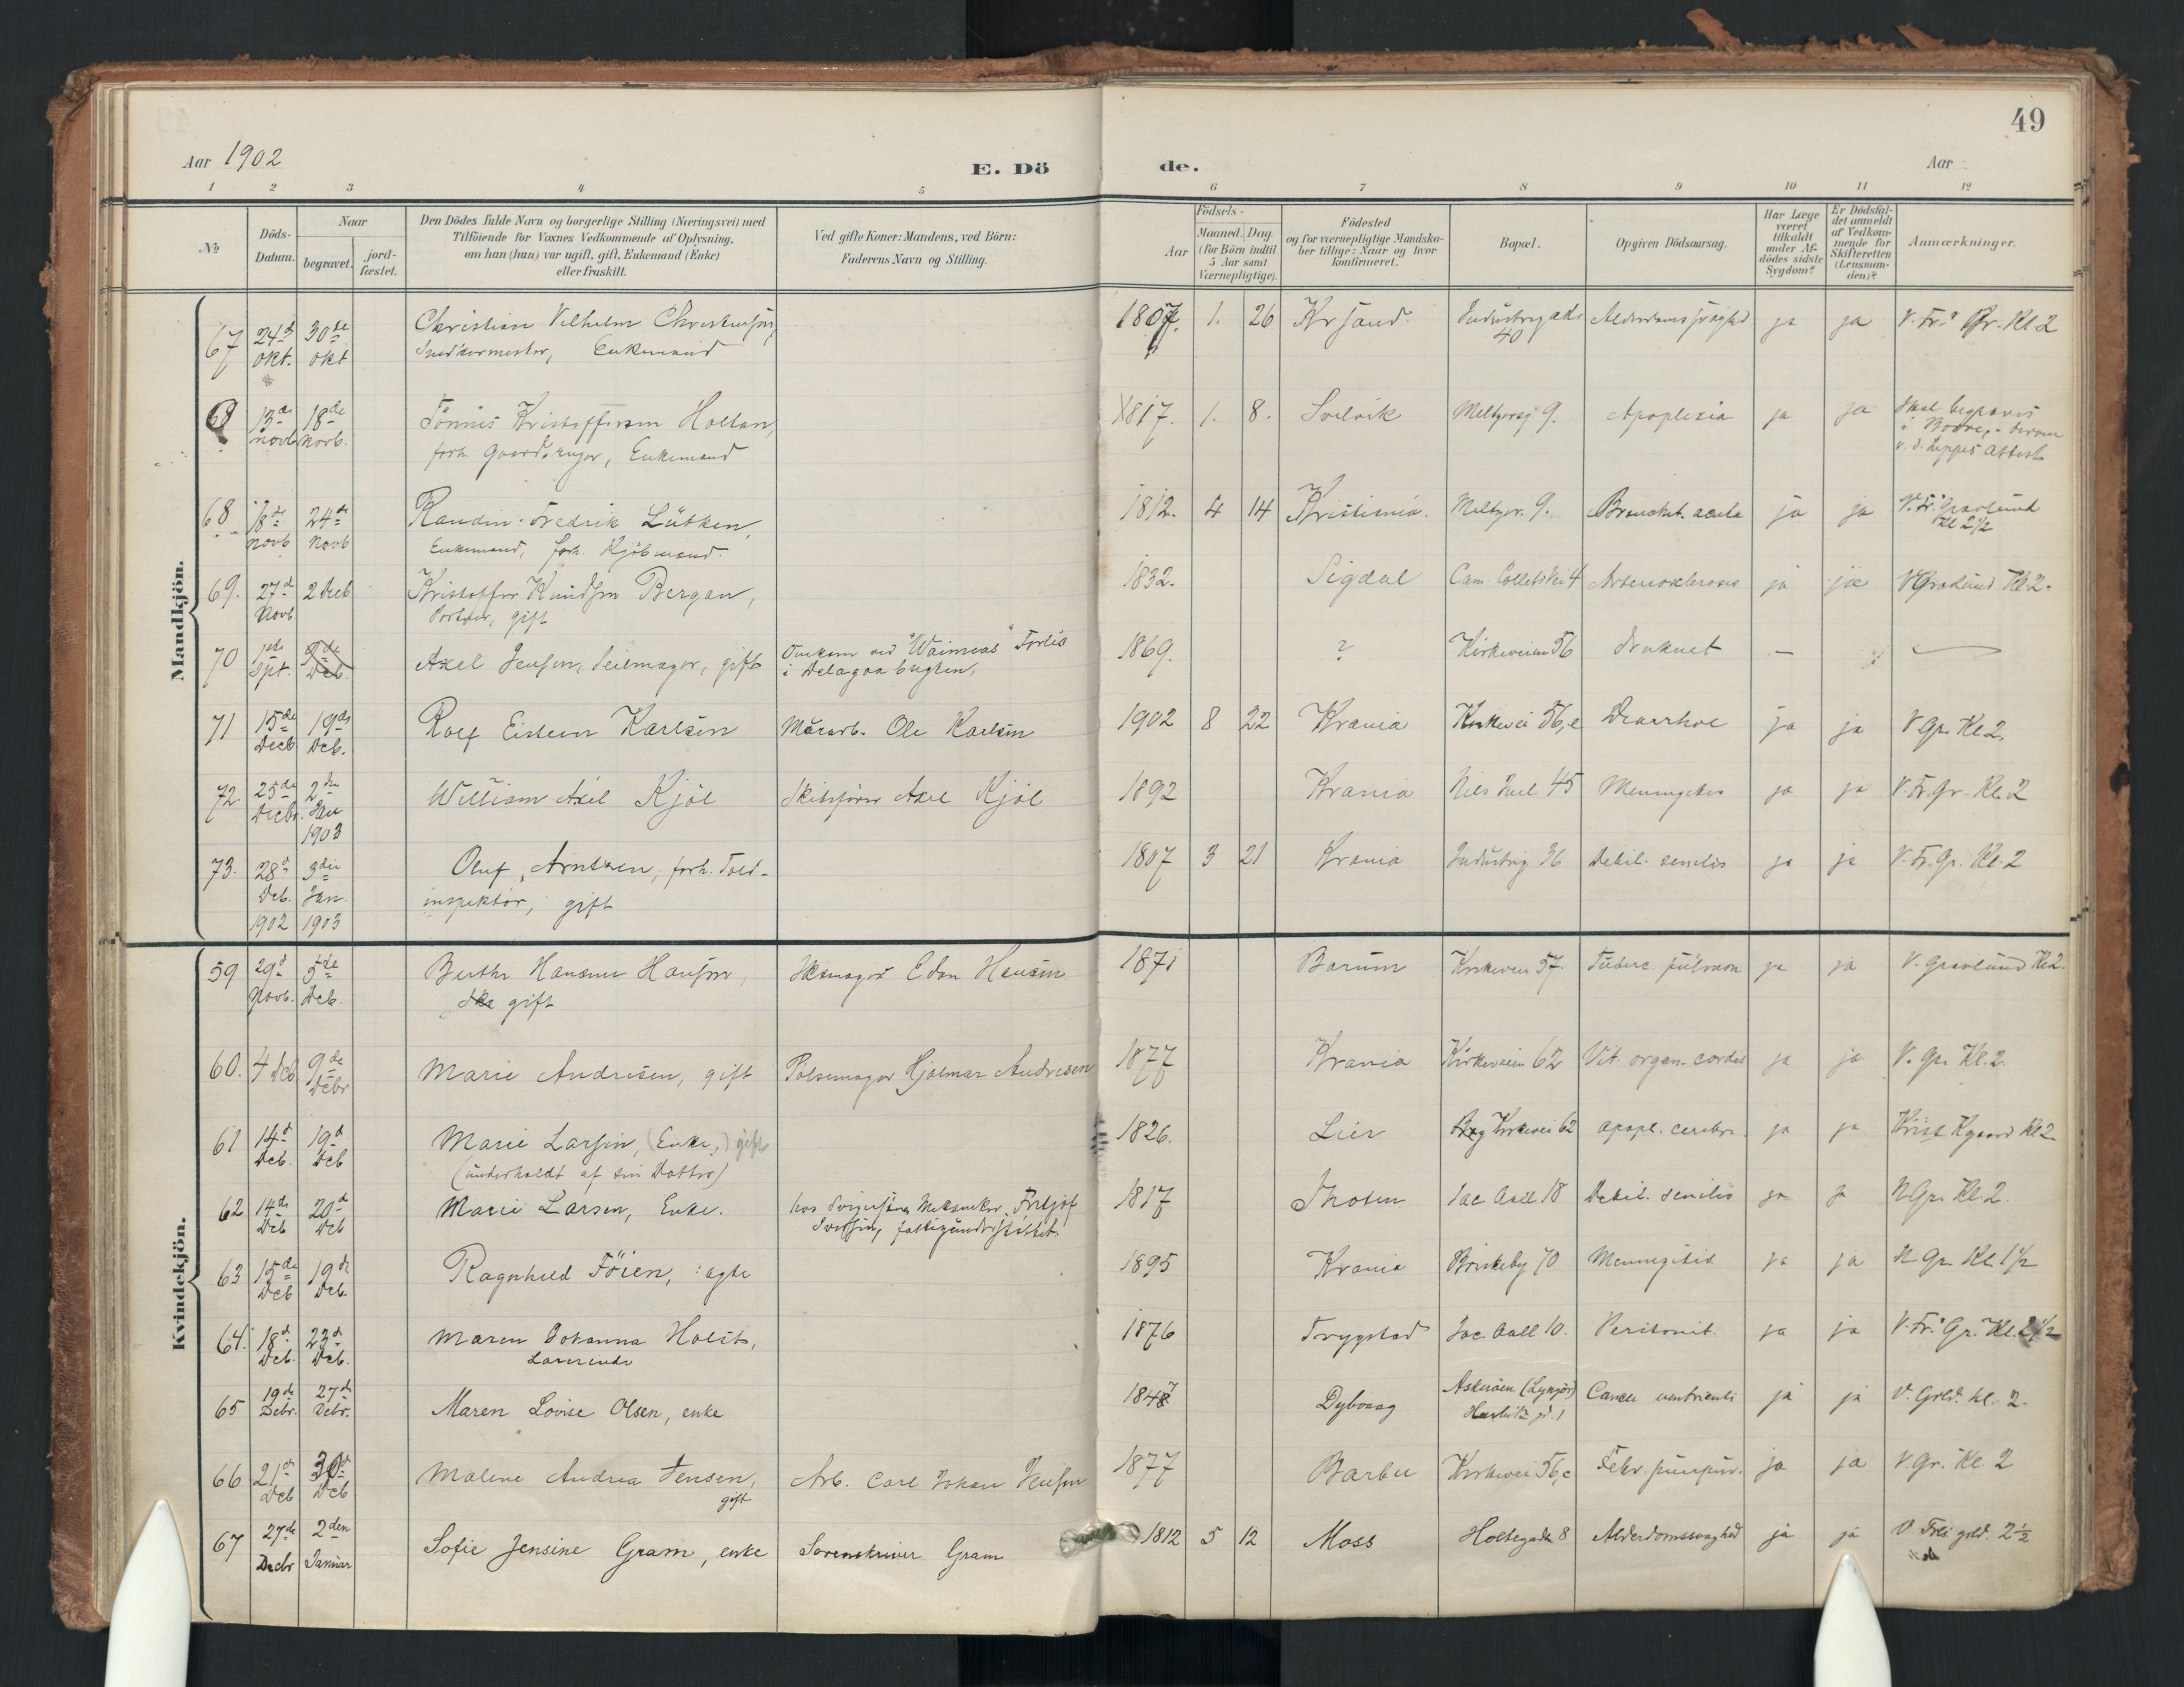 49
Aar 1902
E. Dö
de.
Aar
1 2 3 4 5 6 7 8 9 10 11 12
No
Döds-
Datum.
Naar
begravet.
jord-
fæstet.
Den Dödes fulde Navn og borgerlige Stilling (Næringsvei) med
Tilföiende for Voxnes Vedkommende af Oplysning,
om han (hun) var ugift, gift, Enkemand (Enke)
eller fraskilt.
Ved gifte Koner: Mandens, ved Börn:
Faderens Navn og Stilling.
Födsels-
Aar
Maaned. Dag.
(for Börn indtil
5 Aar samt
Værnepligtige).
Födested
og for værnepligtige Mandska-
ber tillige: Naar og hvor
konfirmeret.
Bopæl.
Opgiven Dödsaarsag.
Har Læge
været
tilkaldt
under Af-
dödes sidste
Sygdom?
Er Dödsfal-
det anmeldt
af Vedkom-
mende for
Skifteretten
(Lensman-
den)?
Anmærkninger.
Mandkjön.
67 24d Okt. 30te Okt Christian Vilhelm
Enkemand
1807. 1. 26 Kr sand. 40 ja ja V. Fr. Gr. Kl 2
13de Novb 18de Novb. Tönnes Kristoffersen Holtan,
forh. Enkemand
1817. 1. 8. Svelvik Meltzersg 9. Apoplexia ja ja Skal begraves
i
68 18de Novb 24de Novb Fredrik Lütken,
Enkemand, forh. Kjöbmand.
1812. 4 14 Kristiania. Meltzer. 9. Bronchit. acuta ja ja V. Fr. Gravlund
Kl 2 1/2
69. 27d Novb. 2 Deb Kristoffer Knudsen Bergan,
Portner, gift
1832. Sigdal Cam. Colletts Vei 4 Arterioskleroses ja ja V Gravlund Kl 2.
70 Spt. Deb. Axel Jensen, Seilmager, gift Omkom ved "Waimeas" Forlis
i Delagoa bugten.
1869. ? Kirkeveien 56 druknet —
71 15de Decb 19de Deb. Rolf Eistein Karlsen Murarb. Ole Karlsen 1902 8 22 Krania Kirkevei 56,c Diarrhoe ja ja V Gr. Kl 2.
72. 25de Decbr. 2den Jan 1903 William Axel Kjöl Skibsförer Axel Kjöl 1892 Krania Niels Juel 45 Meningitis ja ja V. Fr. Gr. Kl. 2
73. 28d Deb. 1902 3die Jan. 1903 Oluf Arntzen, forh. Told-
inspektör, gift
1807 3 21 Krania Industrig 36 Debil. senilis ja ja V. Fr. Gr. Kl. 2
Kvindekjön.
59 29d Novb. 5te Deb. Berthe Hansen,
gift
Hansen 1871 Bærum Kirkeveien 57. Tuberc. pulmon ja ja V. Gravlund Kl 2.
60. 4 Deb 9de Debr Marie Andresen, gift Pölsemager Hjalmar Andresen 1877 Krania Kirkeveien 62 Vit. organ. cordis ja ja V. Gr. Kl. 2.
61 14d Deb. 19d Deb Marie Larsen, (Enke,) gift
(underholdt af sin Datter)
1826. Lier Kirkevei 62 apopl. cerebri. ja ja Krist Kgaard Kl 2.
62 14de Deb 20d Deb Marie Larsen, Enke. hos Svigersön Fritjof
1817 Thoten Jac Aall 18 Debil. senilis ja ja N Gr. Kl 2.
63 15de Deb 19de Deb. Ragnhild Föien, : ægte 1895 Krania Briskeby 70 Meningitis ja ja N. Gr. Kl. 1 1/2
64. 18d Deb. 23d Deb. Maren Johanna Holst,
Lærerinde
1876 Trygstad Jac. Aall 10. Peritonit. ja ja V. Fr. Gr. Kl. 2 1/2
65 19de Debr. 27de Debr. Maren Lovise Olsen, enke 1847 Dybvaag Askeröen (Lyngör)
Cancer ventriculi ja ja V. Grld. kl. 2.
66 21d Deb 30d Deb Malene Andrea Jensen,
gift
Arb. Carl Johan Jensen 1877 Barbu Kirkevei 56,c Febr. puerper. ja ja V Gr. Kl. 2
67 27de Decbr 2den Januar Sofie Jensine Gram, enke Sorenskriver Gram 1812 5 12 Moss Holtegaden 8 Alderdomssvaghed ja ja V Frels grld. 2 1/2